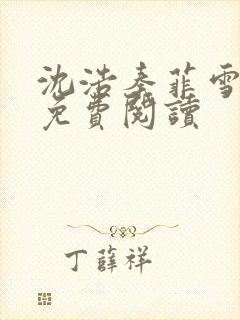 沈浩秦菲雪
免費閱讀
丁薛祥